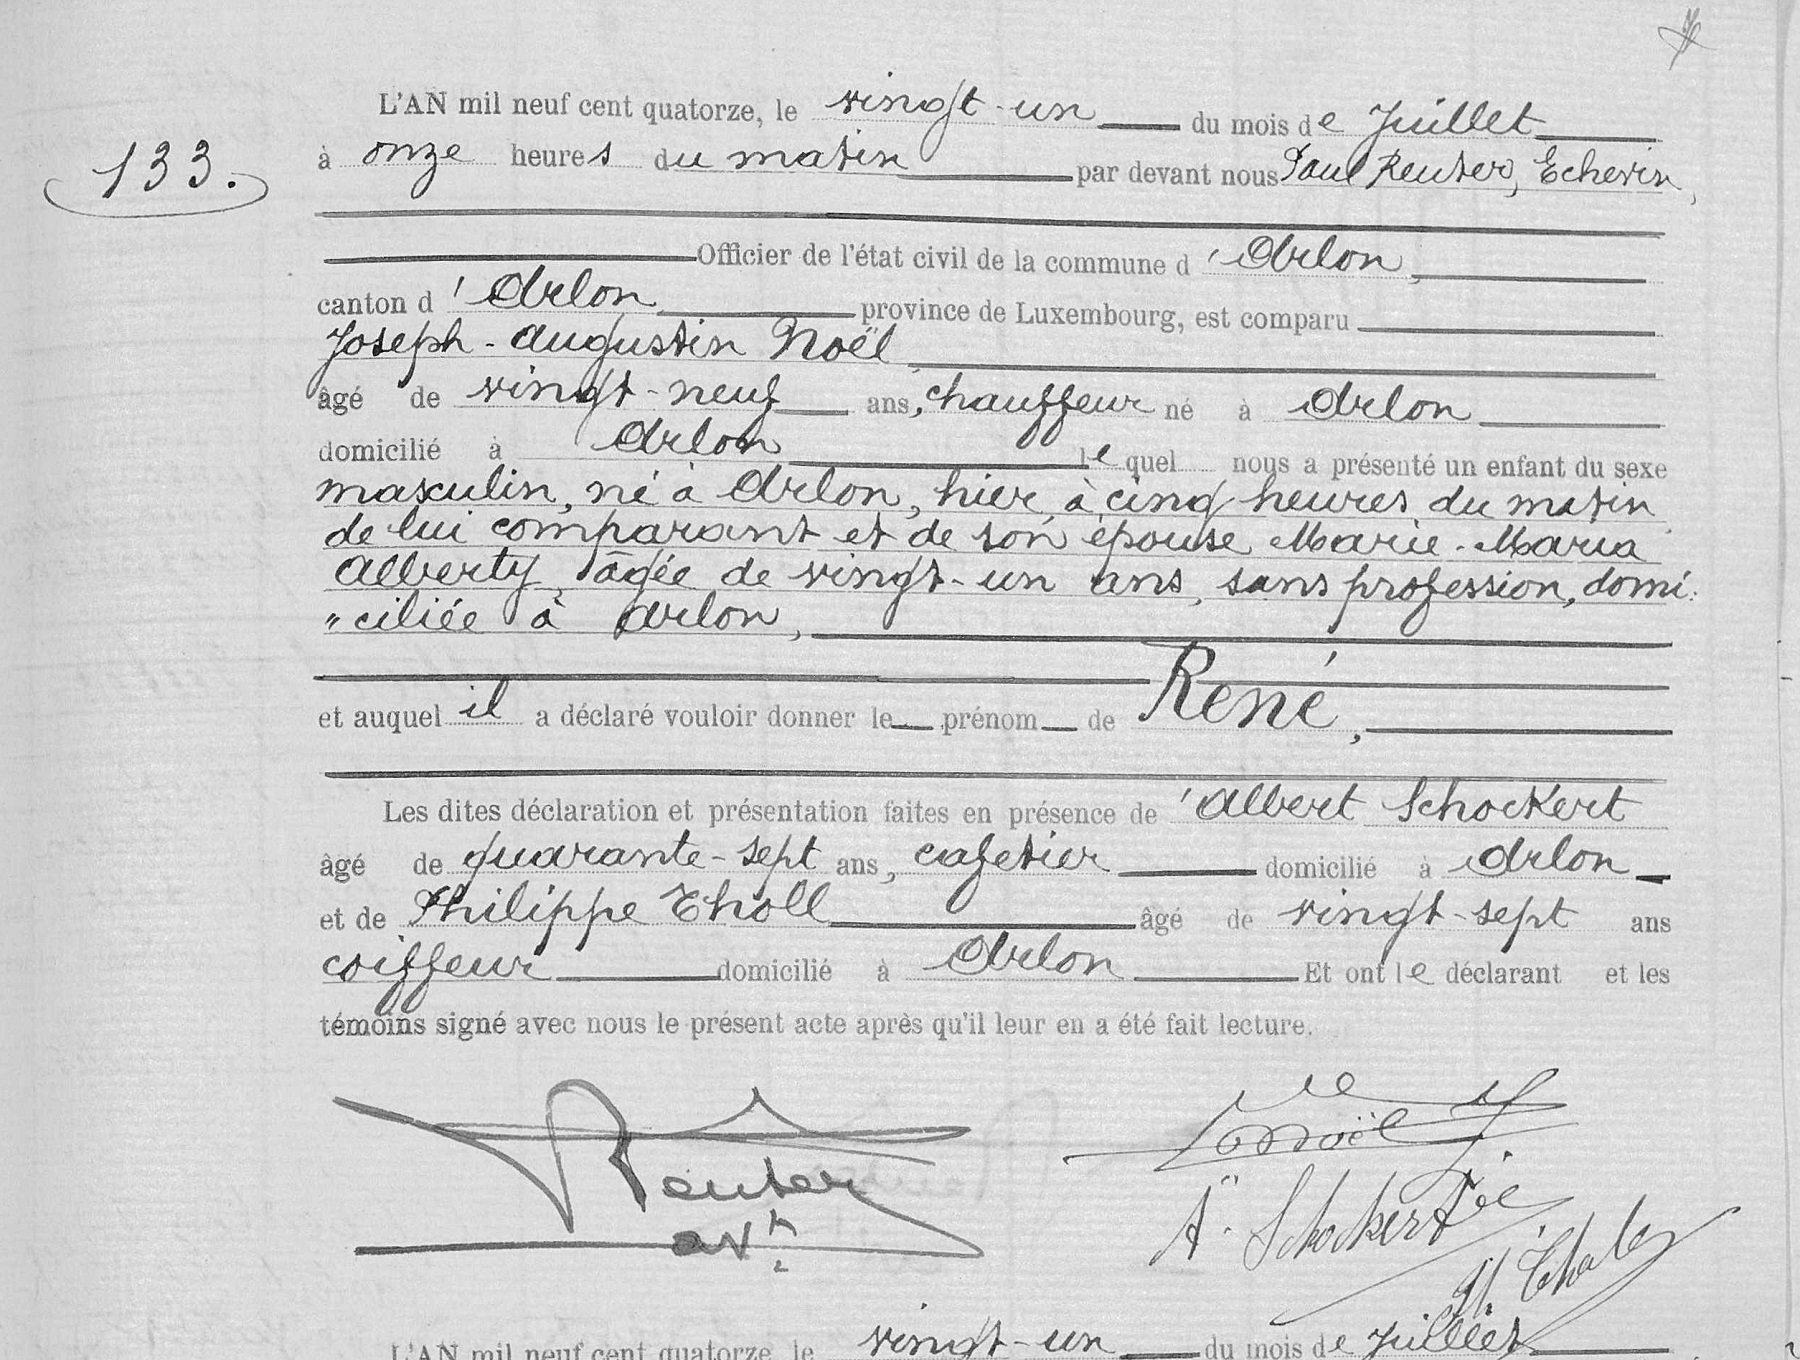 L'AN mil neuf cent quatorze, le vingt-un du mois de Juillet
133. à onze heures du matin par devant nous Paul Reuter, Echevin,
Officier de l'état civil de la commune d'Arlon,
canton d'Arlon province de Luxembourg, est comparu
Joseph-Augustin Noël
âgé de vingt-neuf ans, chauffeur né à Arlon
domicilié à Arlon lequel nous a présenté un enfant du sexe
masculin, né à Arlon, hier, à cinq heures du matin
de lui comparant et de son épouse Marie-Maria
Alberty, âgée de vingt-un ans, sans profession, domi:
"ciliée à Arlon,
et auquel il a déclaré vouloir donner le prénom de René,
Les dites déclaration et présentation faites en présence de 'Albert Schockert
âgé de quarante-sept ans, cafetier domicilié à Arlon
et de Philippe Tholl âgé de vingt-sept ans
coiffeur domicilié à Arlon Et ont le déclarant et les
témoins signé avec nous le présent acte après qu'il leur en a été fait lecture.
Reuter
Noël
A. Schockert
L'AN mil neuf cent quatorze, le vingt-un du mois de Juillet